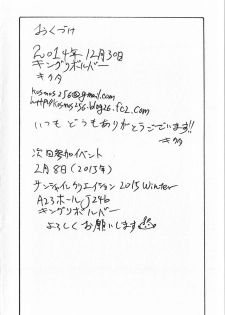 おくづけ
2014年12月30日
キングリボルバー
キクタ
kosmos256@gmail.com
http://kosmos256.blog26.fc2.com
いつもどうもありがとうございます!!
キクタ
次回参加イベント
2月8日(2015年)
サンシャインクリエイション2015 Winter
A23ホールJ24b
キングリボルバー
よろしくお願いします